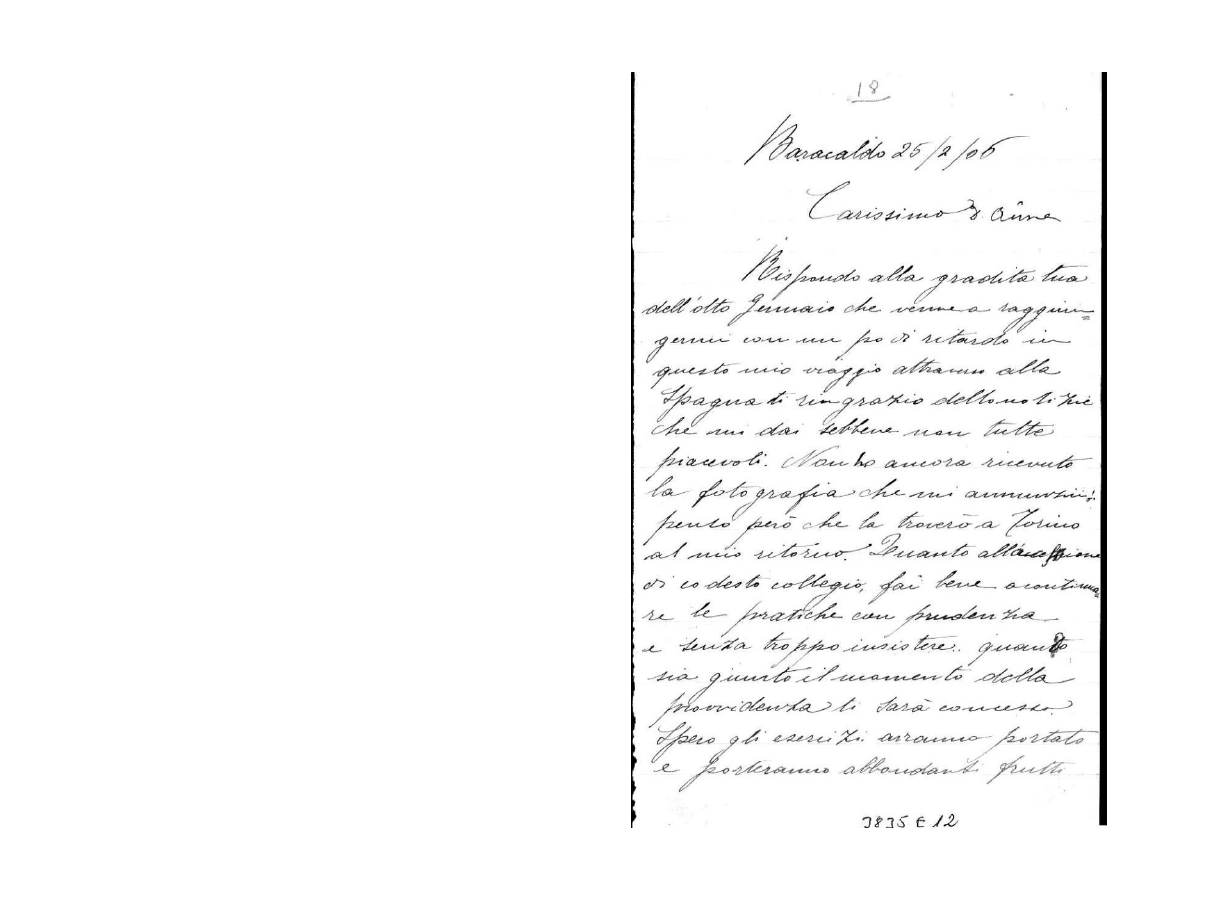 18
Baracaldo 25/2/06
Carissimo D. Aime
Rispondo alla gradita tua
dell'otto Gennaio che venne a raggiun=
germi con un po di ritardo in
questo mio viaggio attraverso alla
Spagna ti ringrazio delle notizie
che mi dai sebbene non tutte
piacevoli. Non ho ancora ricevuto
la fotografia che mi annunzii:
penso però che la troverò a Torino
al mio ritorno. Quanto
di codesto collegio, fai bene a continua=
re le pratiche con prudenza
e senza troppo insistere. quando
sia giunto il momento della
provvidenza ti sarà concesso.
Spero gli esercizi avranno portato
e porteranno abbondanti frutti
3835 E 12